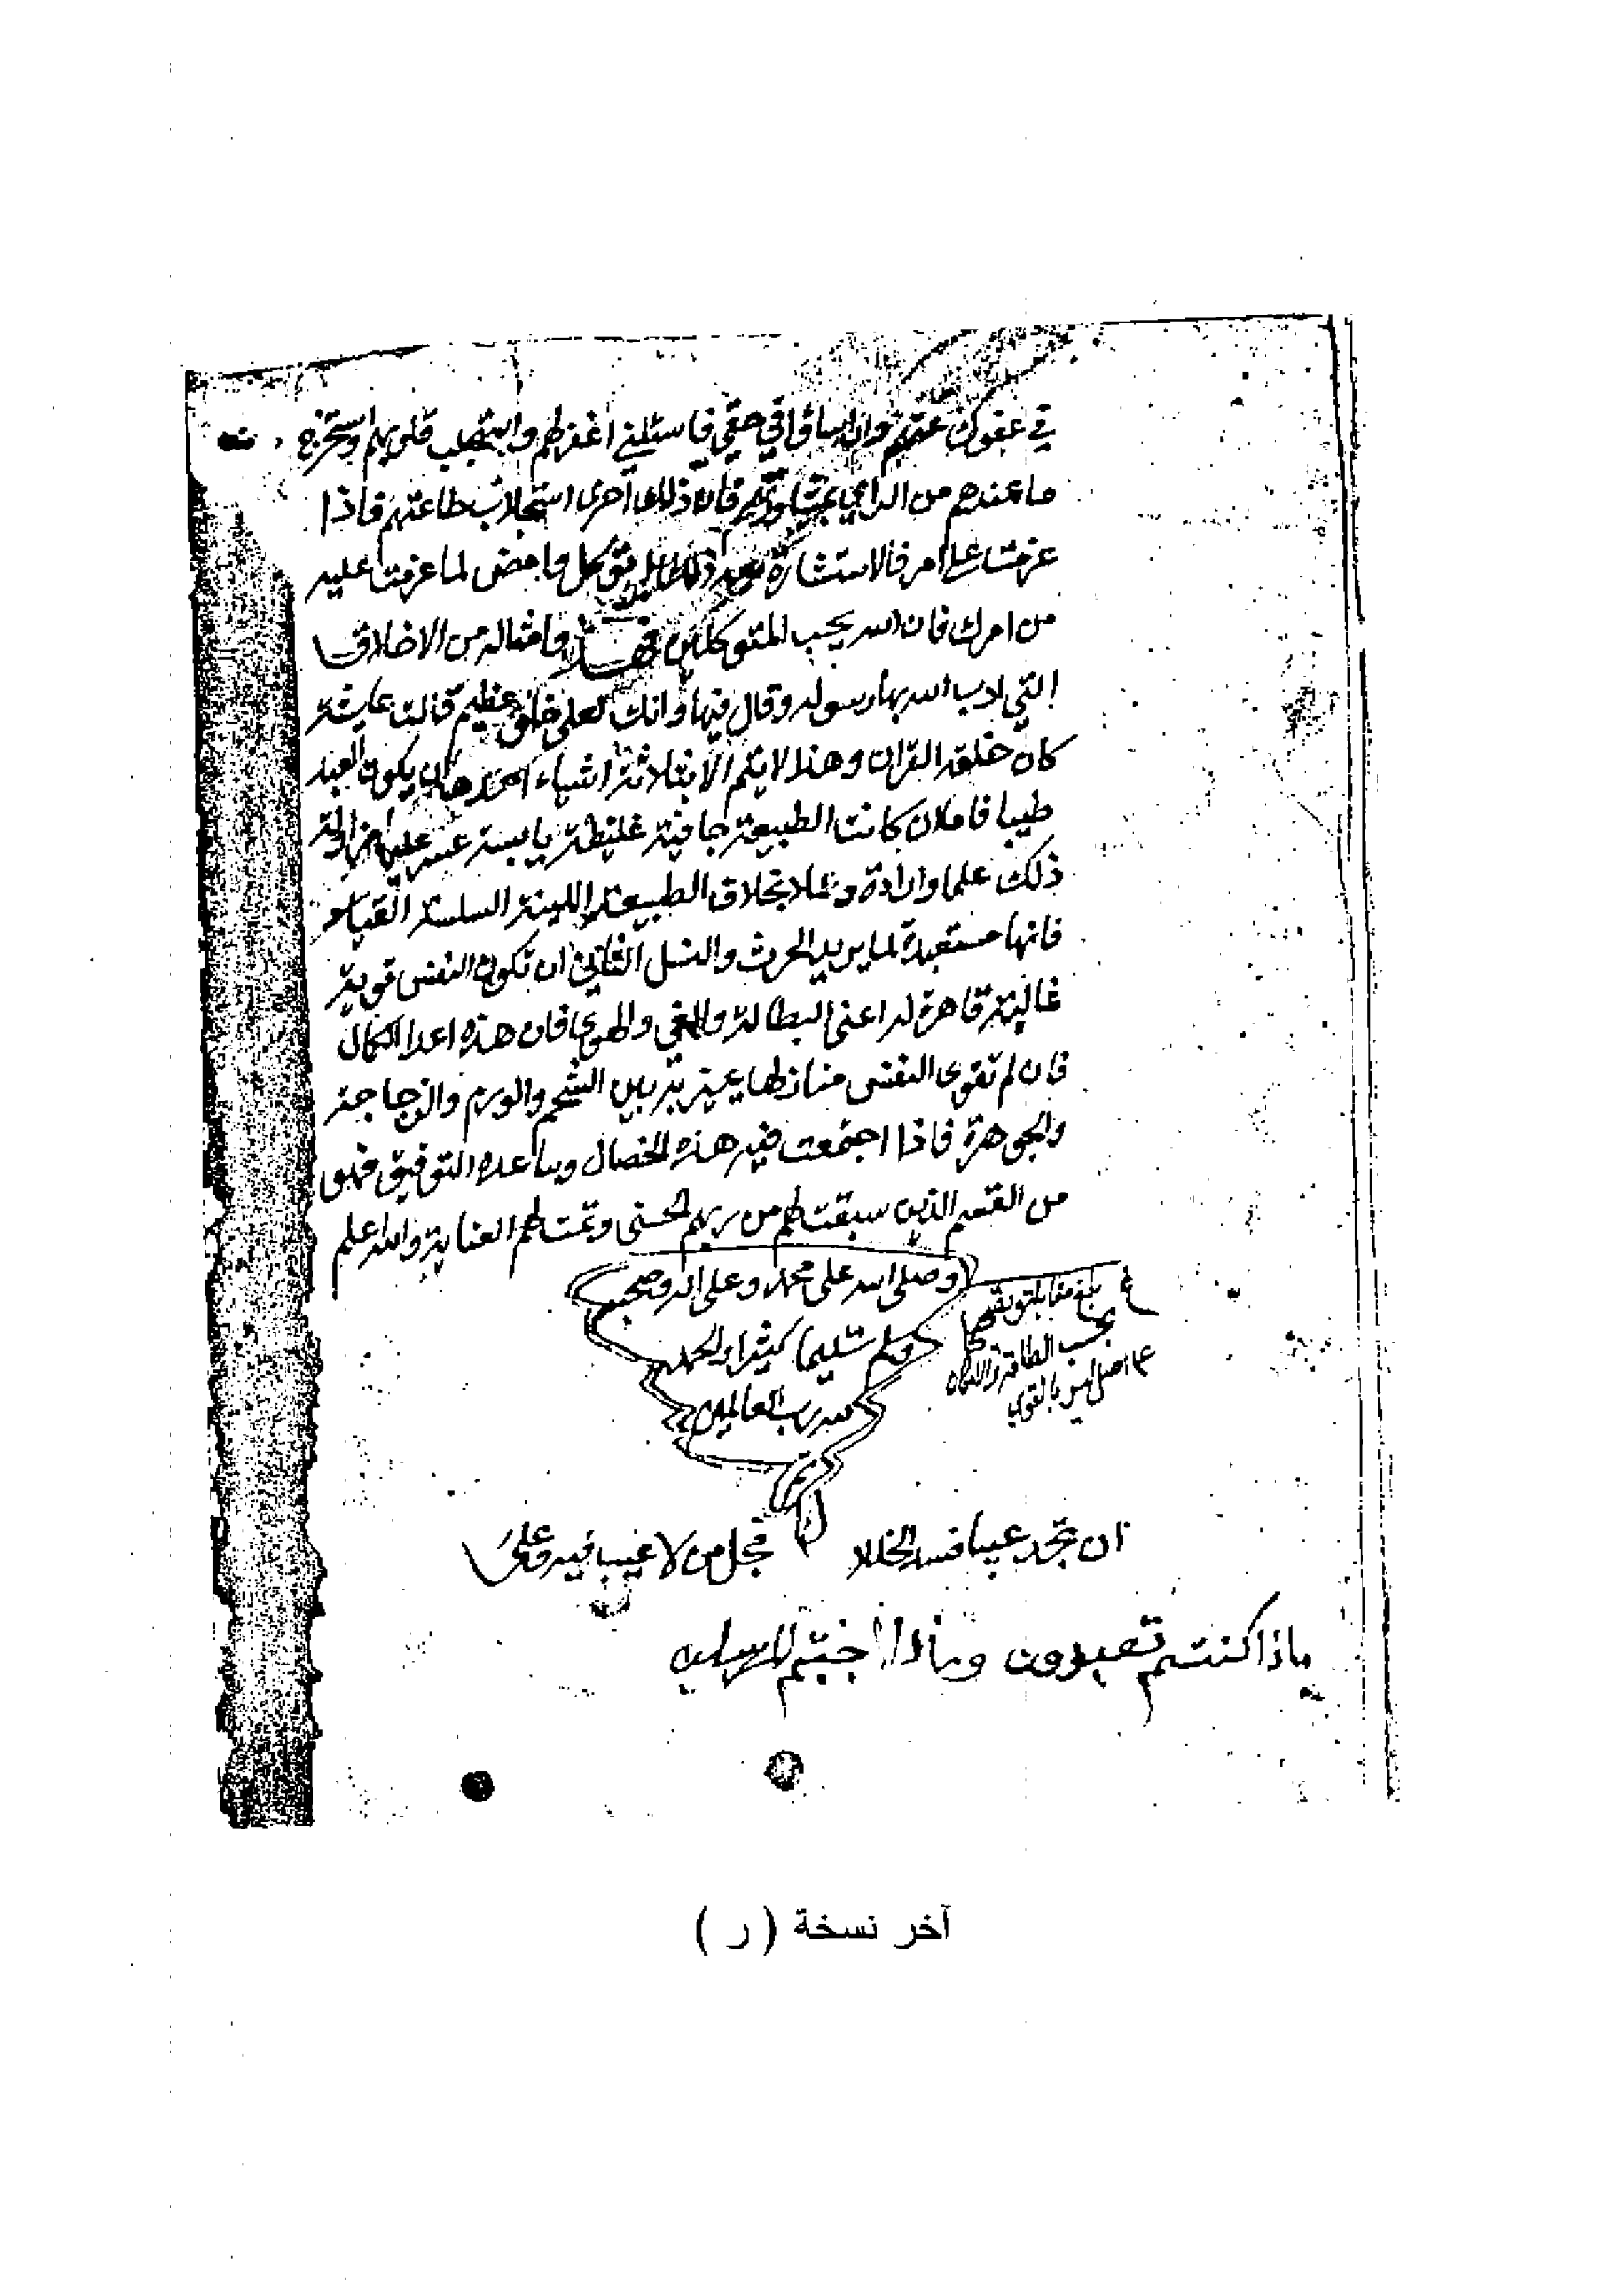 في حقوك عنهم وان اساؤا في حقي فاسئلني اغفر لهم واستجلب قلوبهم واستخرج
ما عندهم من الراي بمشاورتهم فان ذلك احرى استجلاب طاعتهم فاذا
عزمت على امر فلا استشارة بعد ذلك بل توكل وامض لما عزمت عليه
من امرك فان الله يحب المتوكلين فهذا وامثاله من الاخلاق
التي ادب الله بها رسوله وقال فيها وانك لعلى خلق عظيم قالت عايشة
كان خلقه القران وهذا لا يتم الا بثلاثة اشياء احدها ان يكون العبد
طيبا فاما ان كانت الطبيعة جافية غليظة يابسة عسر عليها مزاولة
ذلك علما وارادة وعملا بخلاف الطبيعة اللينة السلسة القياد
فانها مستعدة لما يريد الحرث والنسل الثاني ان تكون النفس قوية
غالبة قاهرة لداعي البطالة والغي والهوى فان هذه اعدا الكمال
فان لم تقوى النفس منازلها يميز به بين الشحم والورم والزجاجة
والجوهرة فاذا اجتمعت فيه هذه الخصال وساعده التوفيق فهو
من القسم الذين سبقت لهم من ربهم الحسنى وتمت لهم العناية والله اعلم
وصلى الله على محمد وعلى اله وصحبه
وسلم تسليما كثيرا والحمد
لله رب العالمين
تم
بلغ مقابلة وتصحيحا
بحسب الطاقة والامكان
على اصل ليس بالقوي
ان تجد عيبا فسد الخللا فجل من لا عيب فيه وعلا
ماذا كنتم تعبدون وماذا اجبتم المرسلين
آخر نسخة ( ر )